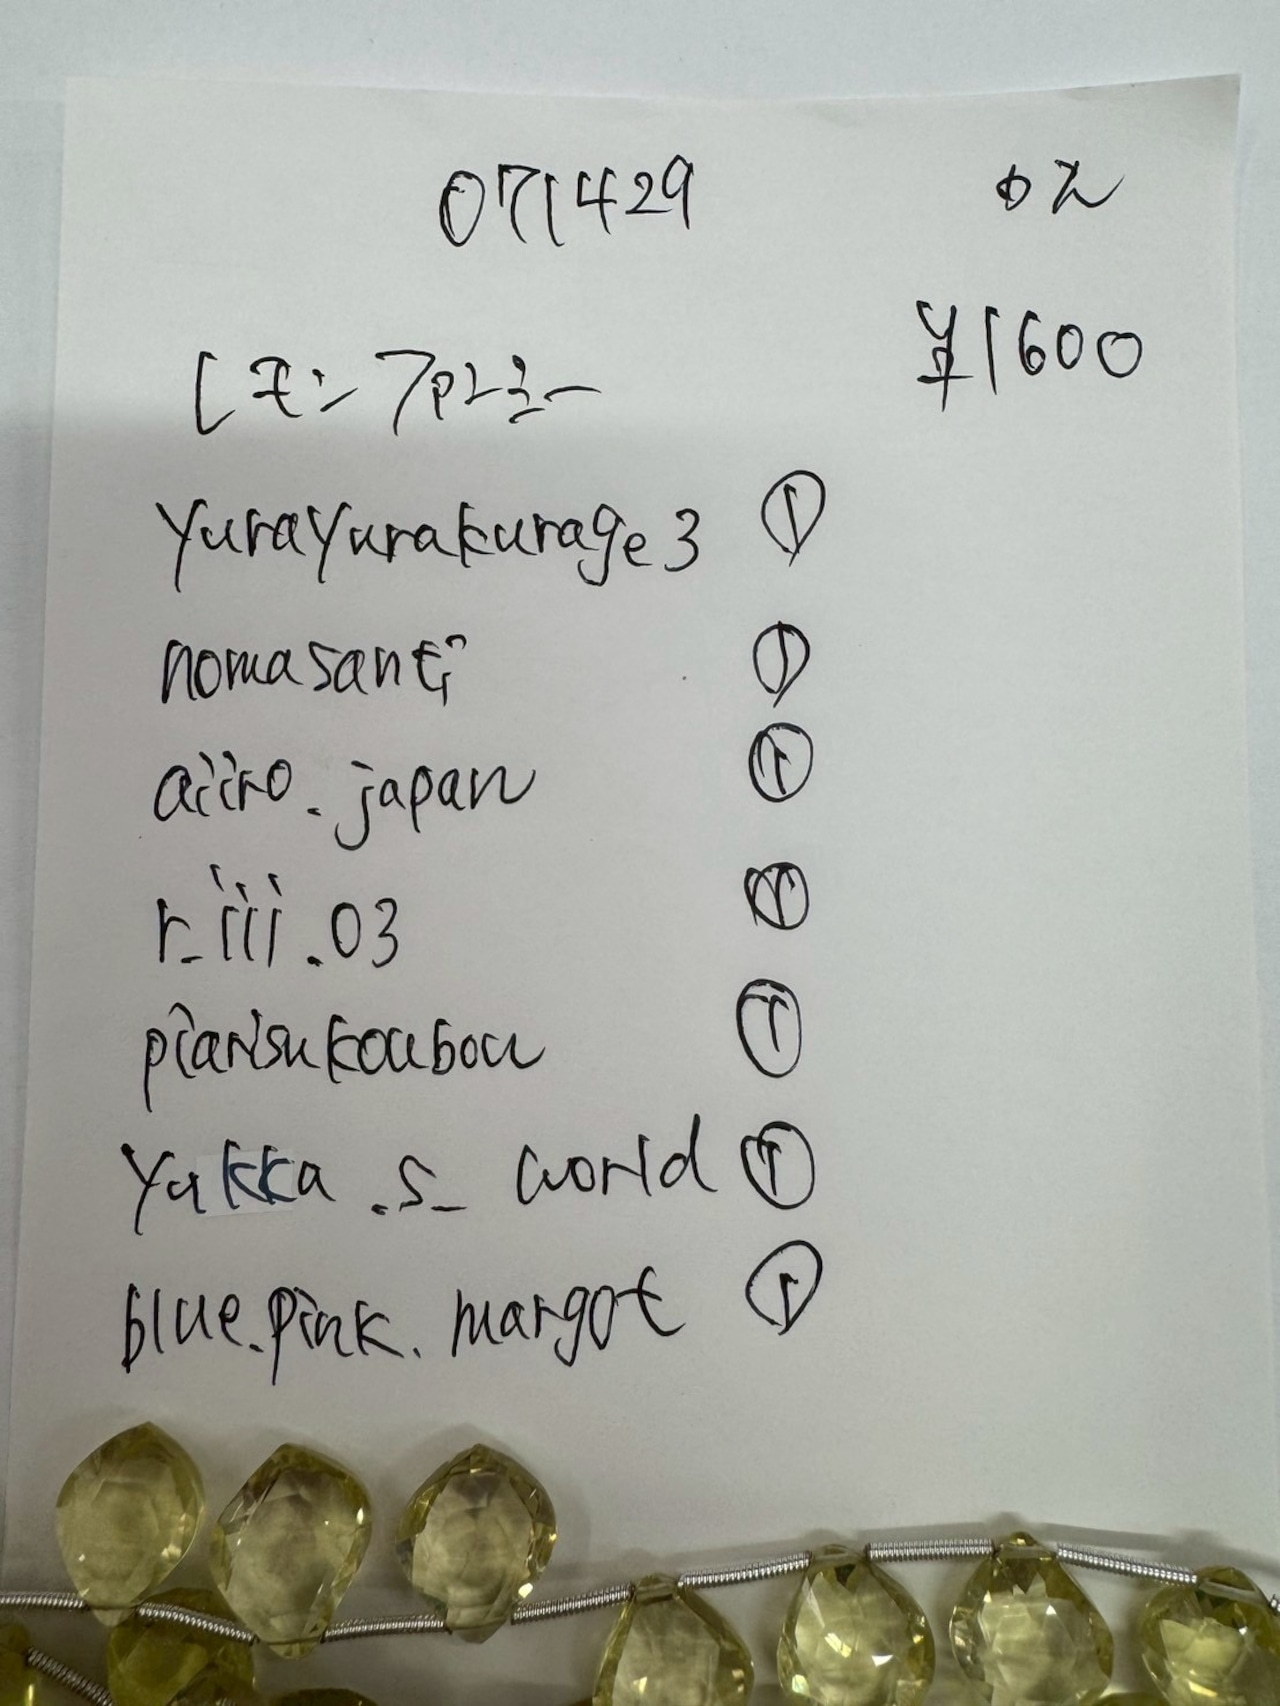 071429
¥1600
レモン
yurayurakurage3 ①
nomasanti ①
aiiro.japan ①
r_iii.03 ①
piarisukoubou ①
yukka.s_world ①
blue.pink.margot ①